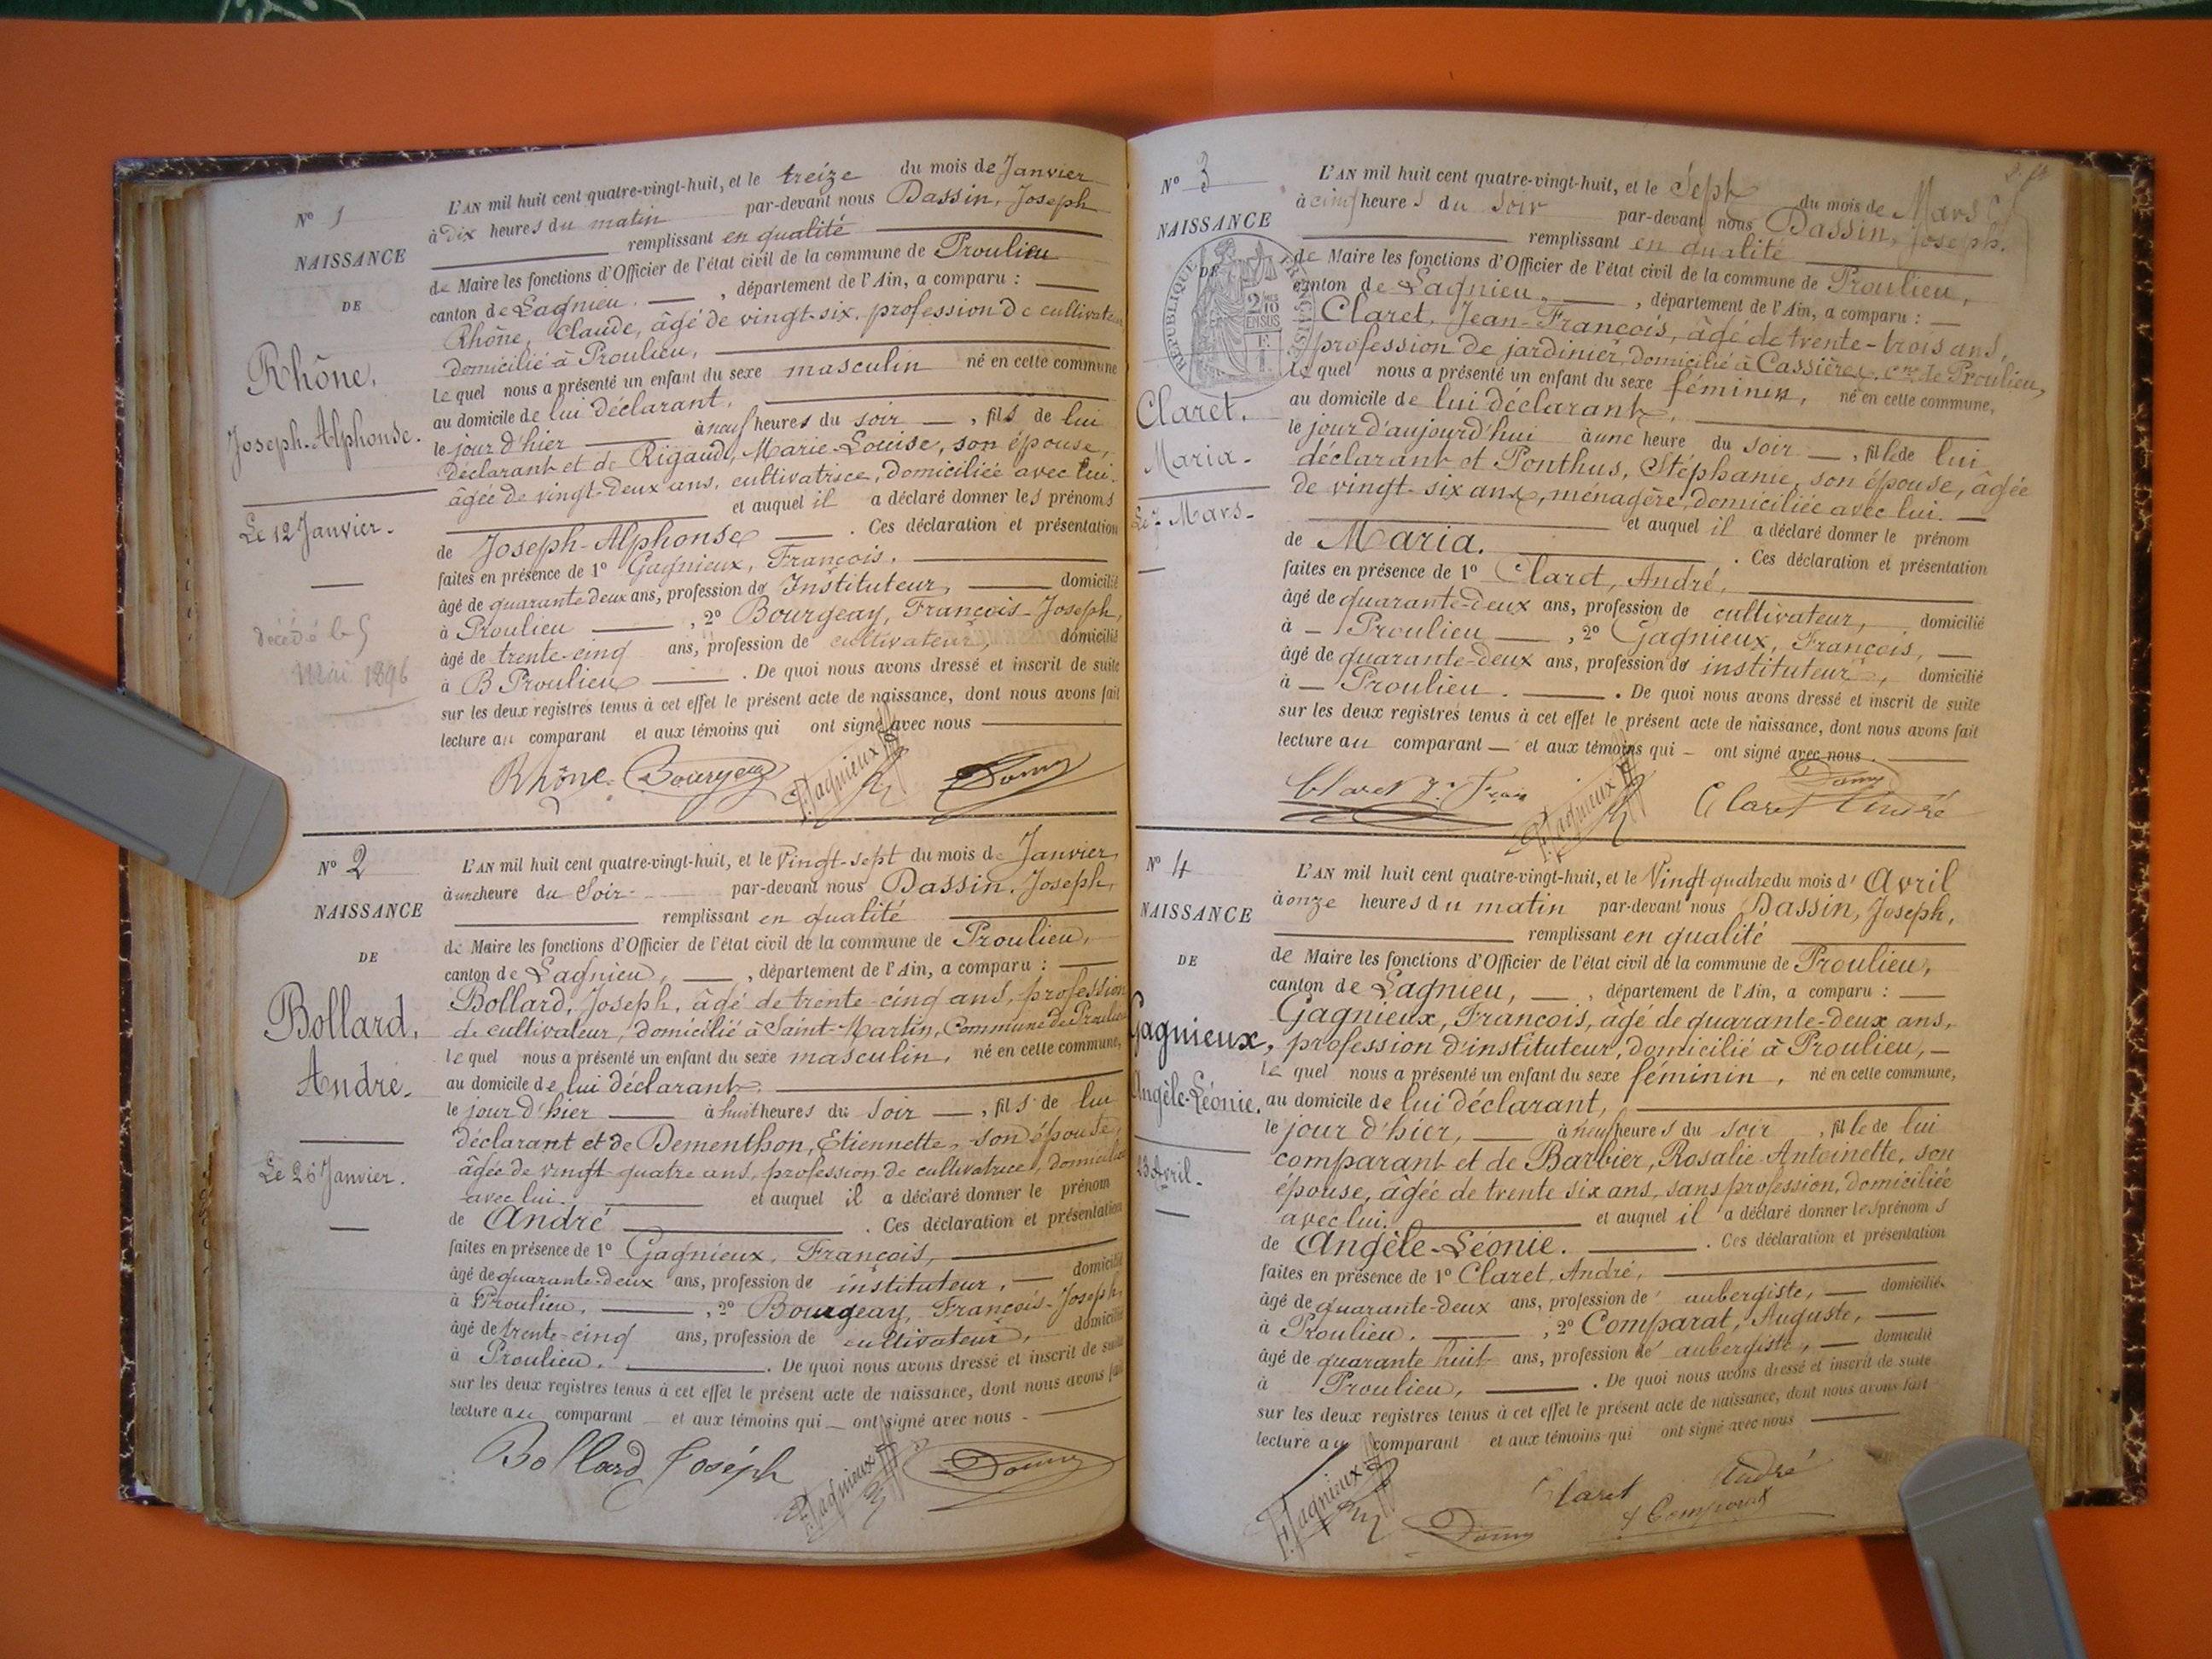 N° 1
NAISSANCE
DE
Rhône,
Joseph-Alphonse.
Le 12 Janvier.
décédé le 5
Mai 1896
L'AN mil huit cent quatre-vingt-huit, et le treize du mois de Janvier
à dix heures du matin par-devant nous Dassin, Joseph
remplissant en qualité
de Maire les fonctions d'Officier de l'état civil de la commune de Proulieu
canton de Lagnieu. , département de l'Ain, a comparu :
Rhône, Claude, âgé de vingt-six, profession de cultivateur
domicilié à Proulieu,
Lequel nous a présenté un enfant du sexe masculin né en cette commune
au domicile de lui déclarant,
le jour d'hier à neuf heures du soir , fils de lui
Déclarant et de Rigaud, Marie-Louise, son épouse,
âgée de vingt-deux ans, cultivatrice, domiciliée avec lui.
et auquel il a déclaré donner les prénoms
de Joseph-Alphonse . Ces déclaration et présentation
faites en présence de 1° Gagnieux, François.
âgé de quarante-deux ans, profession de Instituteur, domicilié
à Proulieu , 2° Bourgeay, François-Joseph,
âgé de trente-cinq ans, profession de cultivateur, domicilié
à B Proulieu . De quoi nous avons dressé et inscrit de suite
sur les deux registres tenus à cet effet le présent acte de naissance, dont nous avons fait
lecture au comparant et aux témoins qui ont signé avec nous
Rhône Bourgeay F. Gagnieux
N° 2
NAISSANCE
DE
Bollard,
André.
Le 26 Janvier.
L'AN mil huit cent quatre-vingt-huit, et le Vingt-sept du mois de Janvier,
à une heure du Soir par-devant nous Dassin, Joseph,
remplissant en qualité
de Maire les fonctions d'Officier de l'état civil de la commune de Proulieu,
canton de Lagnieu, , département de l'Ain, a comparu :
Bollard, Joseph, âgé de trente-cinq ans, profession
de cultivateur, domicilié à Saint-Martin, Commune de Proulieu
Lequel nous a présenté un enfant du sexe masculin, né en cette commune,
au domicile de lui déclarant.
le jour d'hier à huit heures du Soir , fils de lui
déclarant et de Dementhon, Etiennette, son épouse,
âgée de vingt-quatre ans, profession de cultivatrice, domiciliée
avec lui. et auquel il a déclaré donner le prénom
de André . Ces déclaration et présentation
faites en présence de 1° Gagnieux, François,
âgé de quarante-deux ans, profession de instituteur, domicilié
à Proulieu, , 2° Bourgeay, François-Joseph,
âgé de trente-cinq ans, profession de cultivateur, domicilié
à Proulieu. . De quoi nous avons dressé et inscrit de suite
sur les deux registres tenus à cet effet le présent acte de naissance, dont nous avons fait
lecture au comparant et aux témoins qui ont signé avec nous
Bollard Joseph F. Gagnieux
N° 3
NAISSANCE
DE
RÉPUBLIQUE FRANÇAISE
2/10 EN SUS
Claret,
Maria.
Le 7 Mars.
L'AN mil huit cent quatre-vingt-huit, et le Sept du mois de Mars
à cinq heures du Soir par-devant nous Dassin, Joseph.
remplissant en qualité
de Maire les fonctions d'Officier de l'état civil de la commune de Proulieu,
canton de Lagnieu, , département de l'Ain, a comparu :
Claret, Jean-François, âgé de trente-trois ans,
profession de jardinier, domicilié à Cassières, cne de Proulieu,
Lequel nous a présenté un enfant du sexe féminin, né en cette commune,
au domicile de lui déclarant,
le jour d'aujourd'hui à une heure du soir , fille de lui
déclarant et Ponthus, Stéphanie, son épouse, âgée
de vingt-six ans, ménagère, domiciliée avec lui.
et auquel il a déclaré donner le prénom
de Maria. . Ces déclaration et présentation
faites en présence de 1° Claret, André,
âgé de quarante-deux ans, profession de cultivateur, domicilié
à Proulieu , 2° Gagnieux, François,
âgé de quarante-deux ans, profession de instituteur, domicilié
à Proulieu. . De quoi nous avons dressé et inscrit de suite
sur les deux registres tenus à cet effet le présent acte de naissance, dont nous avons fait
lecture au comparant et aux témoins qui ont signé avec nous.
Claret F. Gagnieux Claret André
N° 4
NAISSANCE
DE
Gagnieux,
Angèle-Léonie.
23 Avril.
L'AN mil huit cent quatre-vingt-huit, et le Vingt quatre du mois d'Avril
à onze heures du matin par-devant nous Dassin, Joseph,
remplissant en qualité
de Maire les fonctions d'Officier de l'état civil de la commune de Proulieu,
canton de Lagnieu, , département de l'Ain, a comparu :
Gagnieux, François, âgé de quarante-deux ans,
profession d'instituteur, domicilié à Proulieu,
Lequel nous a présenté un enfant du sexe féminin, né en cette commune,
au domicile de lui déclarant,
le jour d'hier, à neuf heures du soir , fille de lui
comparant et de Barbier, Rosalie-Antoinette, son
épouse, âgée de trente six ans, sans profession, domiciliée
avec lui. et auquel il a déclaré donner les prénoms
de Angèle-Léonie. . Ces déclaration et présentation
faites en présence de 1° Claret, André,
âgé de quarante-deux ans, profession de aubergiste, domicilié
à Proulieu. , 2° Comparat, Auguste,
âgé de quarante huit ans, profession de aubergiste, domicilié
à Proulieu, . De quoi nous avons dressé et inscrit de suite
sur les deux registres tenus à cet effet le présent acte de naissance, dont nous avons fait
lecture au comparant et aux témoins qui ont signé avec nous
F. Gagnieux Claret André